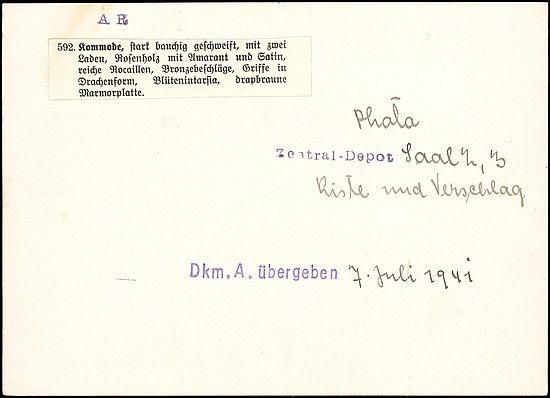 A R
592. Kommode, stark bauchig geschweift, mit zwei
Laden, Rosenholz mit Amarant und Satin,
reiche Rocaillen, Bronzebeschläge, Griffe in
Drachenform, Blütenintarsia, drapbraune
Marmorplatte.
Zentral-Depot Saal 2, 3
Kiste und Verschlag
Dkm. A. übergeben 7. Juli 1941